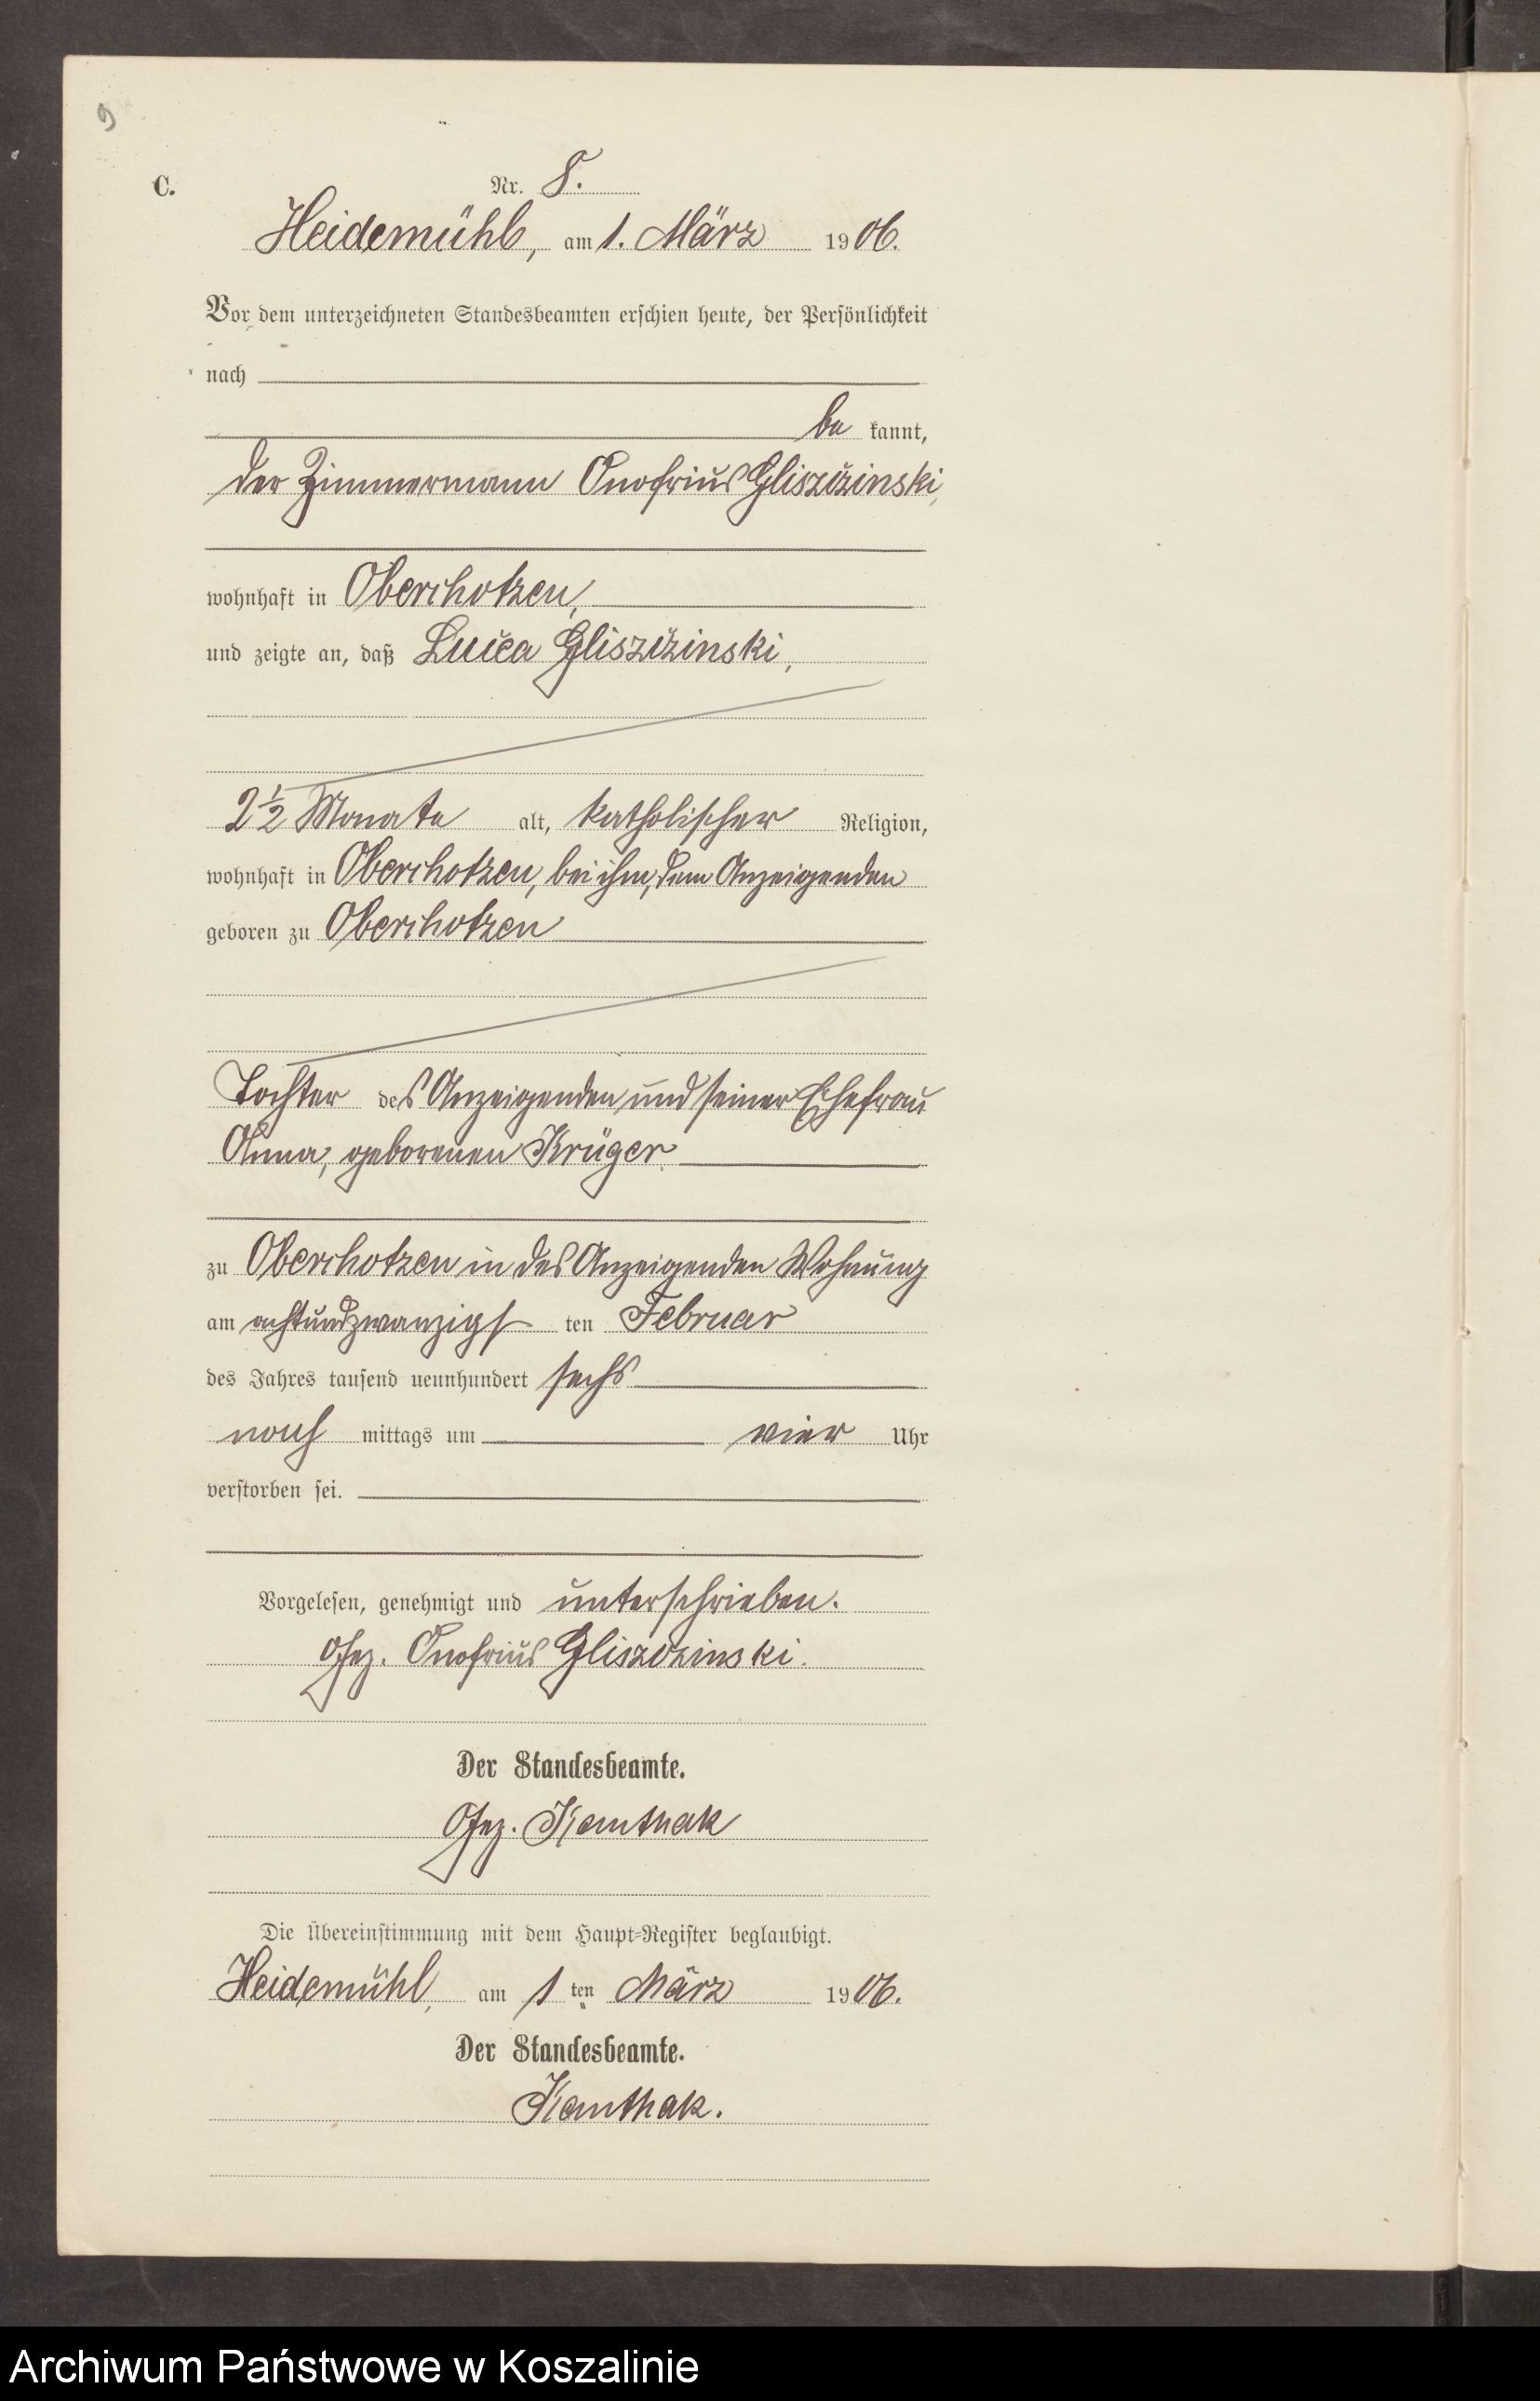 9
C.
Nr. 8.
Heidemühl, am 1. März 1906.
Vor dem unterzeichneten Standesbeamten erschien heute, der Persönlichkeit
nach
be kannt,
der Zimmermann Onofrius Gliszizinski,
wohnhaft in Oberchotzen,
und zeigte an, daß Luica Gliszizinski,
2½ Monate alt, katholischer Religion,
wohnhaft in Oberchotzen, bei ihm, dem Anzeigenden
geboren zu Oberchotzen
Tochter des Anzeigenden und seiner Ehefrau
Anna, geborenen Krüger
zu Oberchotzen in des Anzeigenden Wohnung
am achtundzwanzigsten Februar
des Jahres tausend neunhundert sechs
nach mittags um vier Uhr
verstorben sei.
Vorgelesen, genehmigt und unterschrieben.
Gez. Onofrius Gliszczinski.
Der Standesbeamte.
Gez. Kamthak
Die Übereinstimmung mit dem Haupt-Register beglaubigt.
Heidemühl, am 1 ten März 1906.
Der Standesbeamte.
Kamthak.
Archiwum Państwowe w Koszalinie